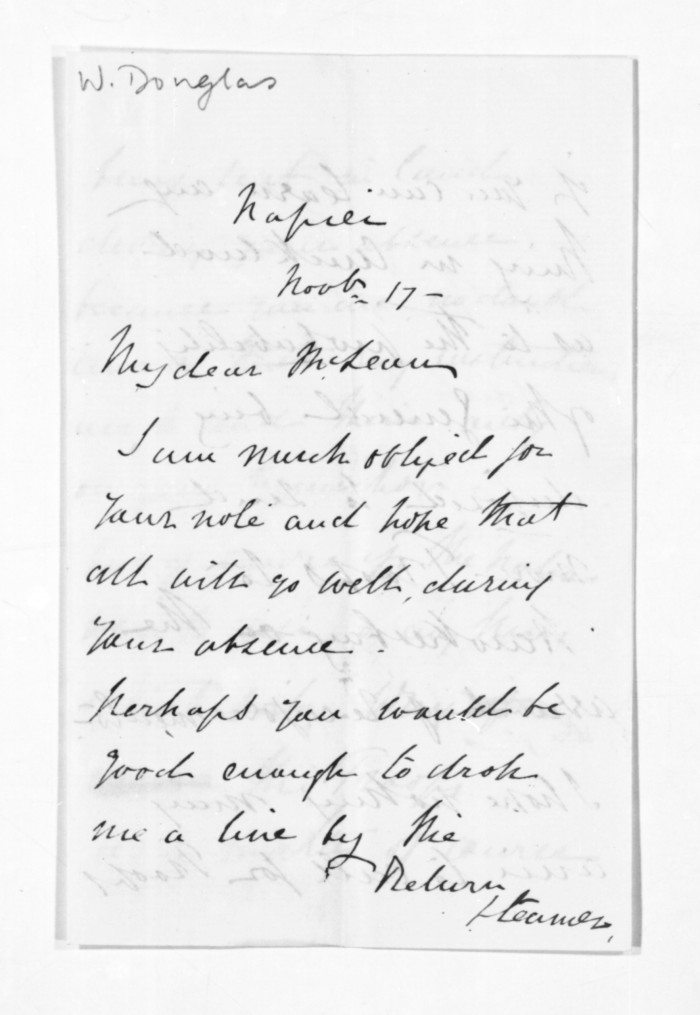 W. Douglas
Napier
Novbr 17 -
My dear McLean
I am much obliged for
your note and hope that
all will go well, during
your absence.
Perhaps you would be
good enough to drop
me a line by the
Return
Steamer,